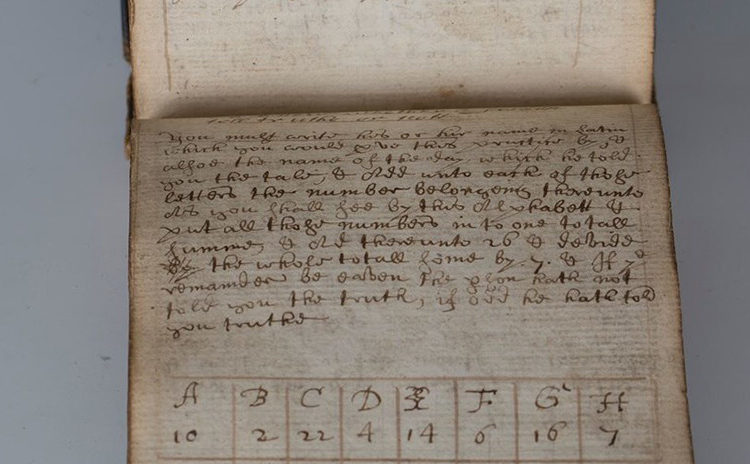 tell truthe or not
You must write his or her name in latin
which you would prove this practice by, &
allsoe the name of the day which he told
you the tale, & Add unto each of those
letters the number belongeng thereunto
As you shall see by this Alphabett &
put all those numbers in to one totall
summe, & Ad thereunto 26 & devide
the whole totall some by .7. & If ye
remainder be eaven the pson hath not
told you the truth, if odd he hath told
you truthe
A B C D E F G H
10 2 22 4 14 6 16 7